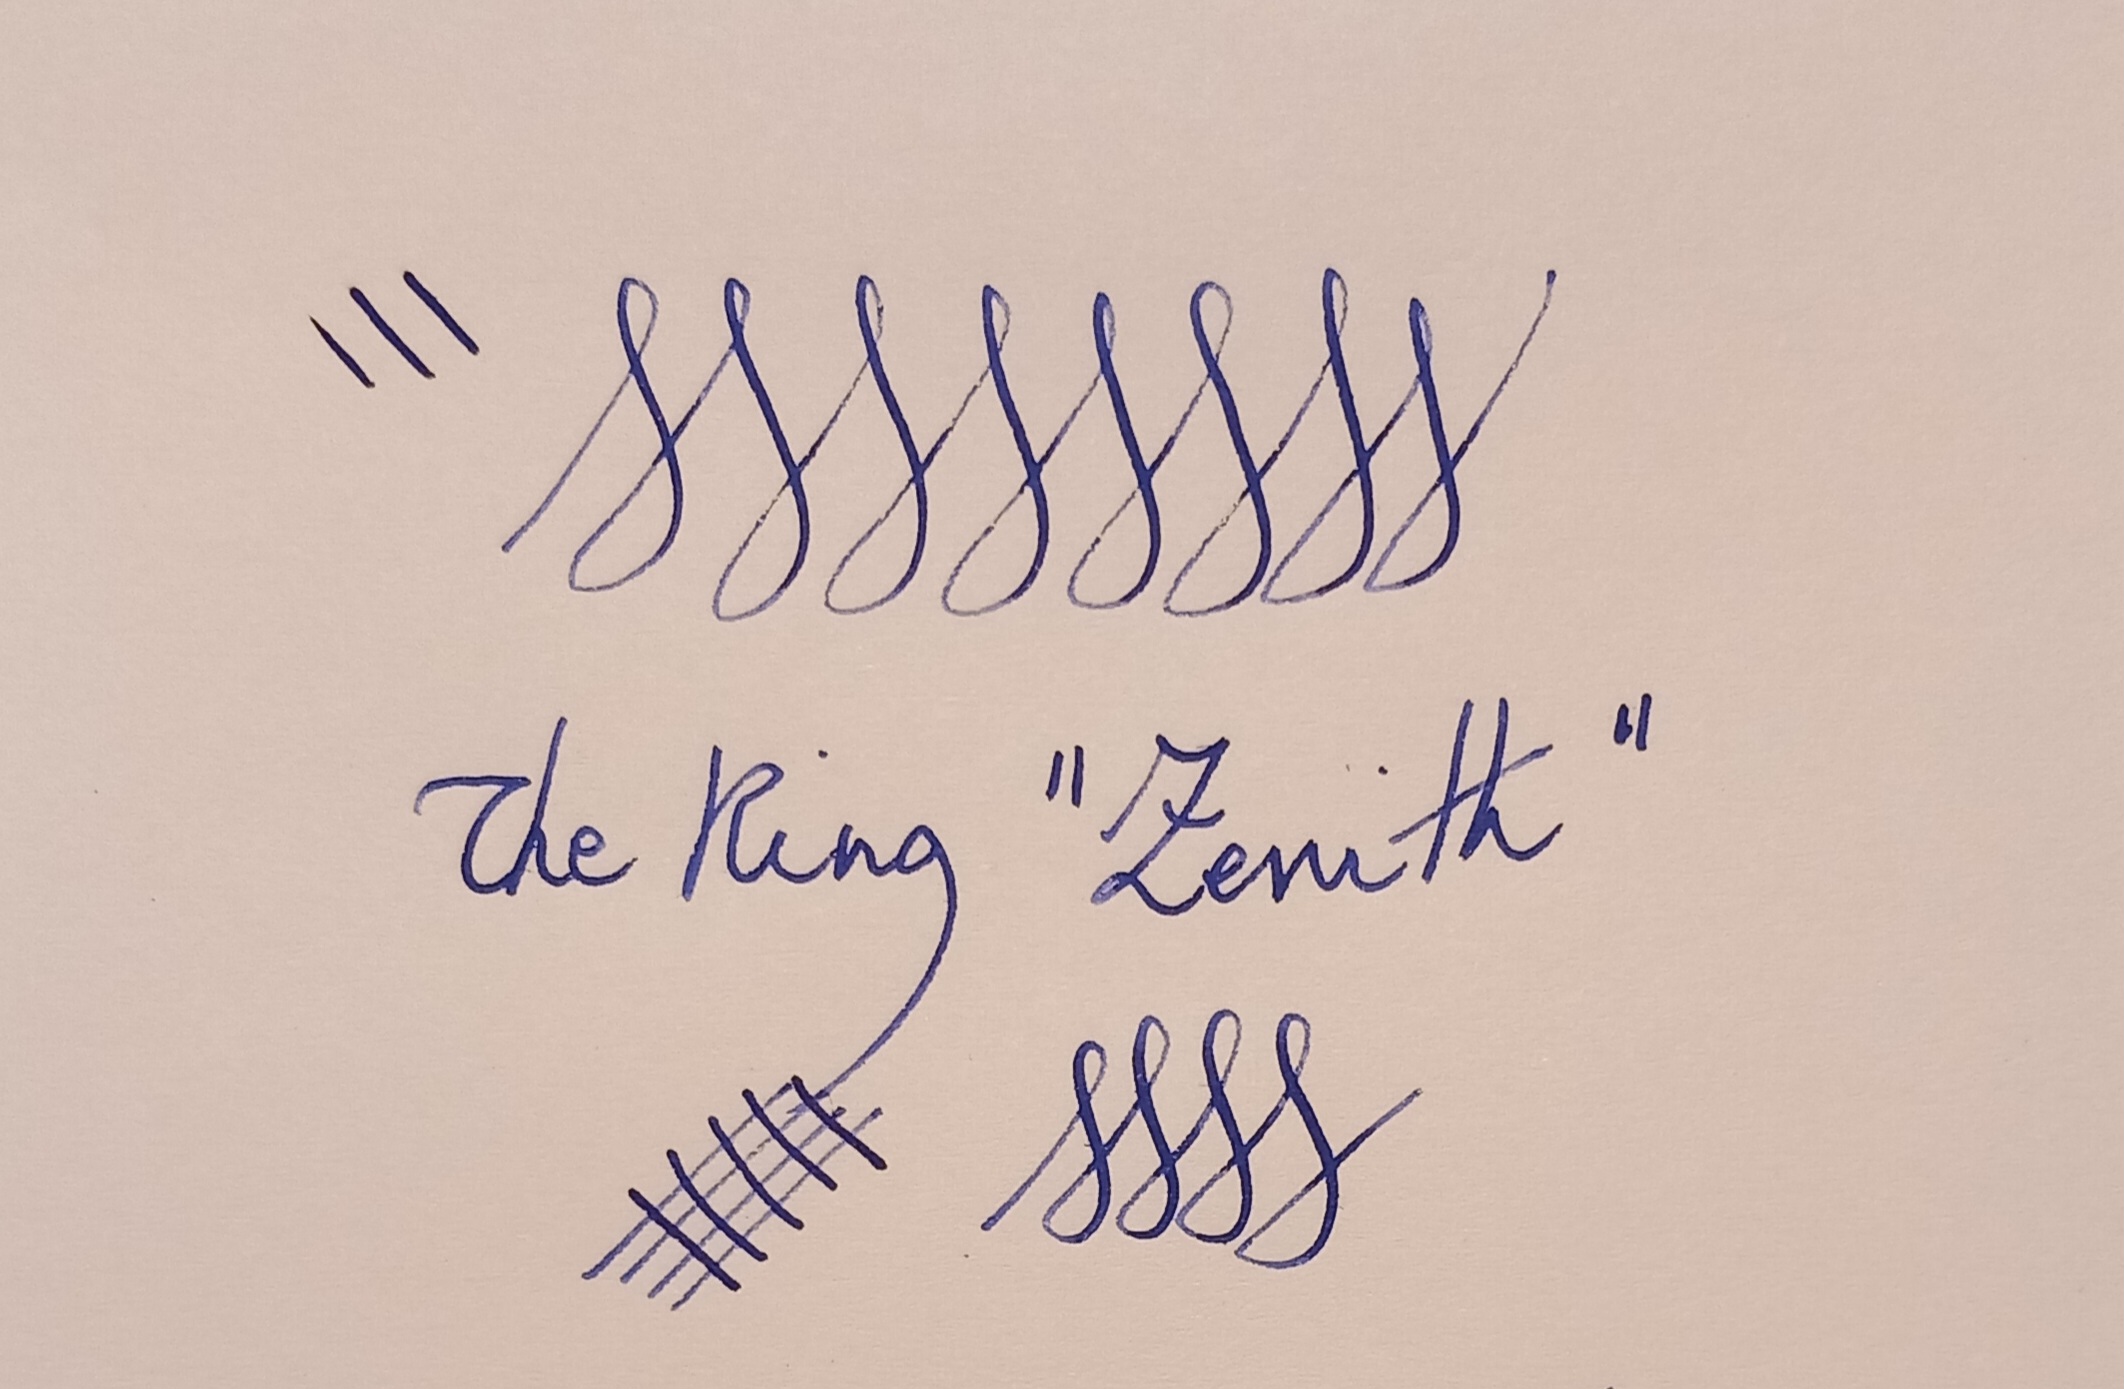 The Ring "Zenith"